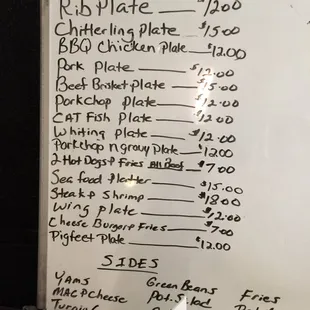 Rib Plate $1200
Chitterling Plate $15.00
BBQ Chicken Plate $12.00
Pork Plate $12.00
Beef Brisket Plate $15.00
PorkChop Plate $12.00
CAT Fish Plate $12.00
Whiting Plate $12.00
Porkchop n gravy Plate $12.00
2 Hot Dogs & Fries All Beef $7.00
Sea food Platter $15.00
Steak & Shrimp $18.00
Wing Plate $12.00
Cheese Burger & Fries $7.00
Pigfeet Plate $12.00
SIDES
YAMS Green Beans Fries
MAC & Cheese Pot. Salad